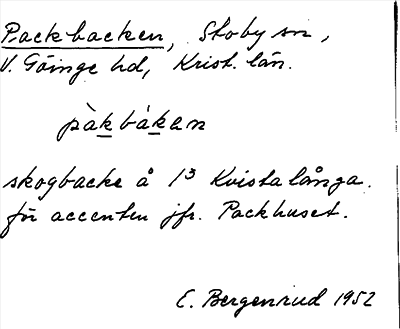 Packbacken, Stoby sn,
V. Göinge hd, Krist. län.
pàkbákan
skogbacke å 1³ Kvistalånga.
för accenten jfr. Packhuset.
E. Bergenrud 1952